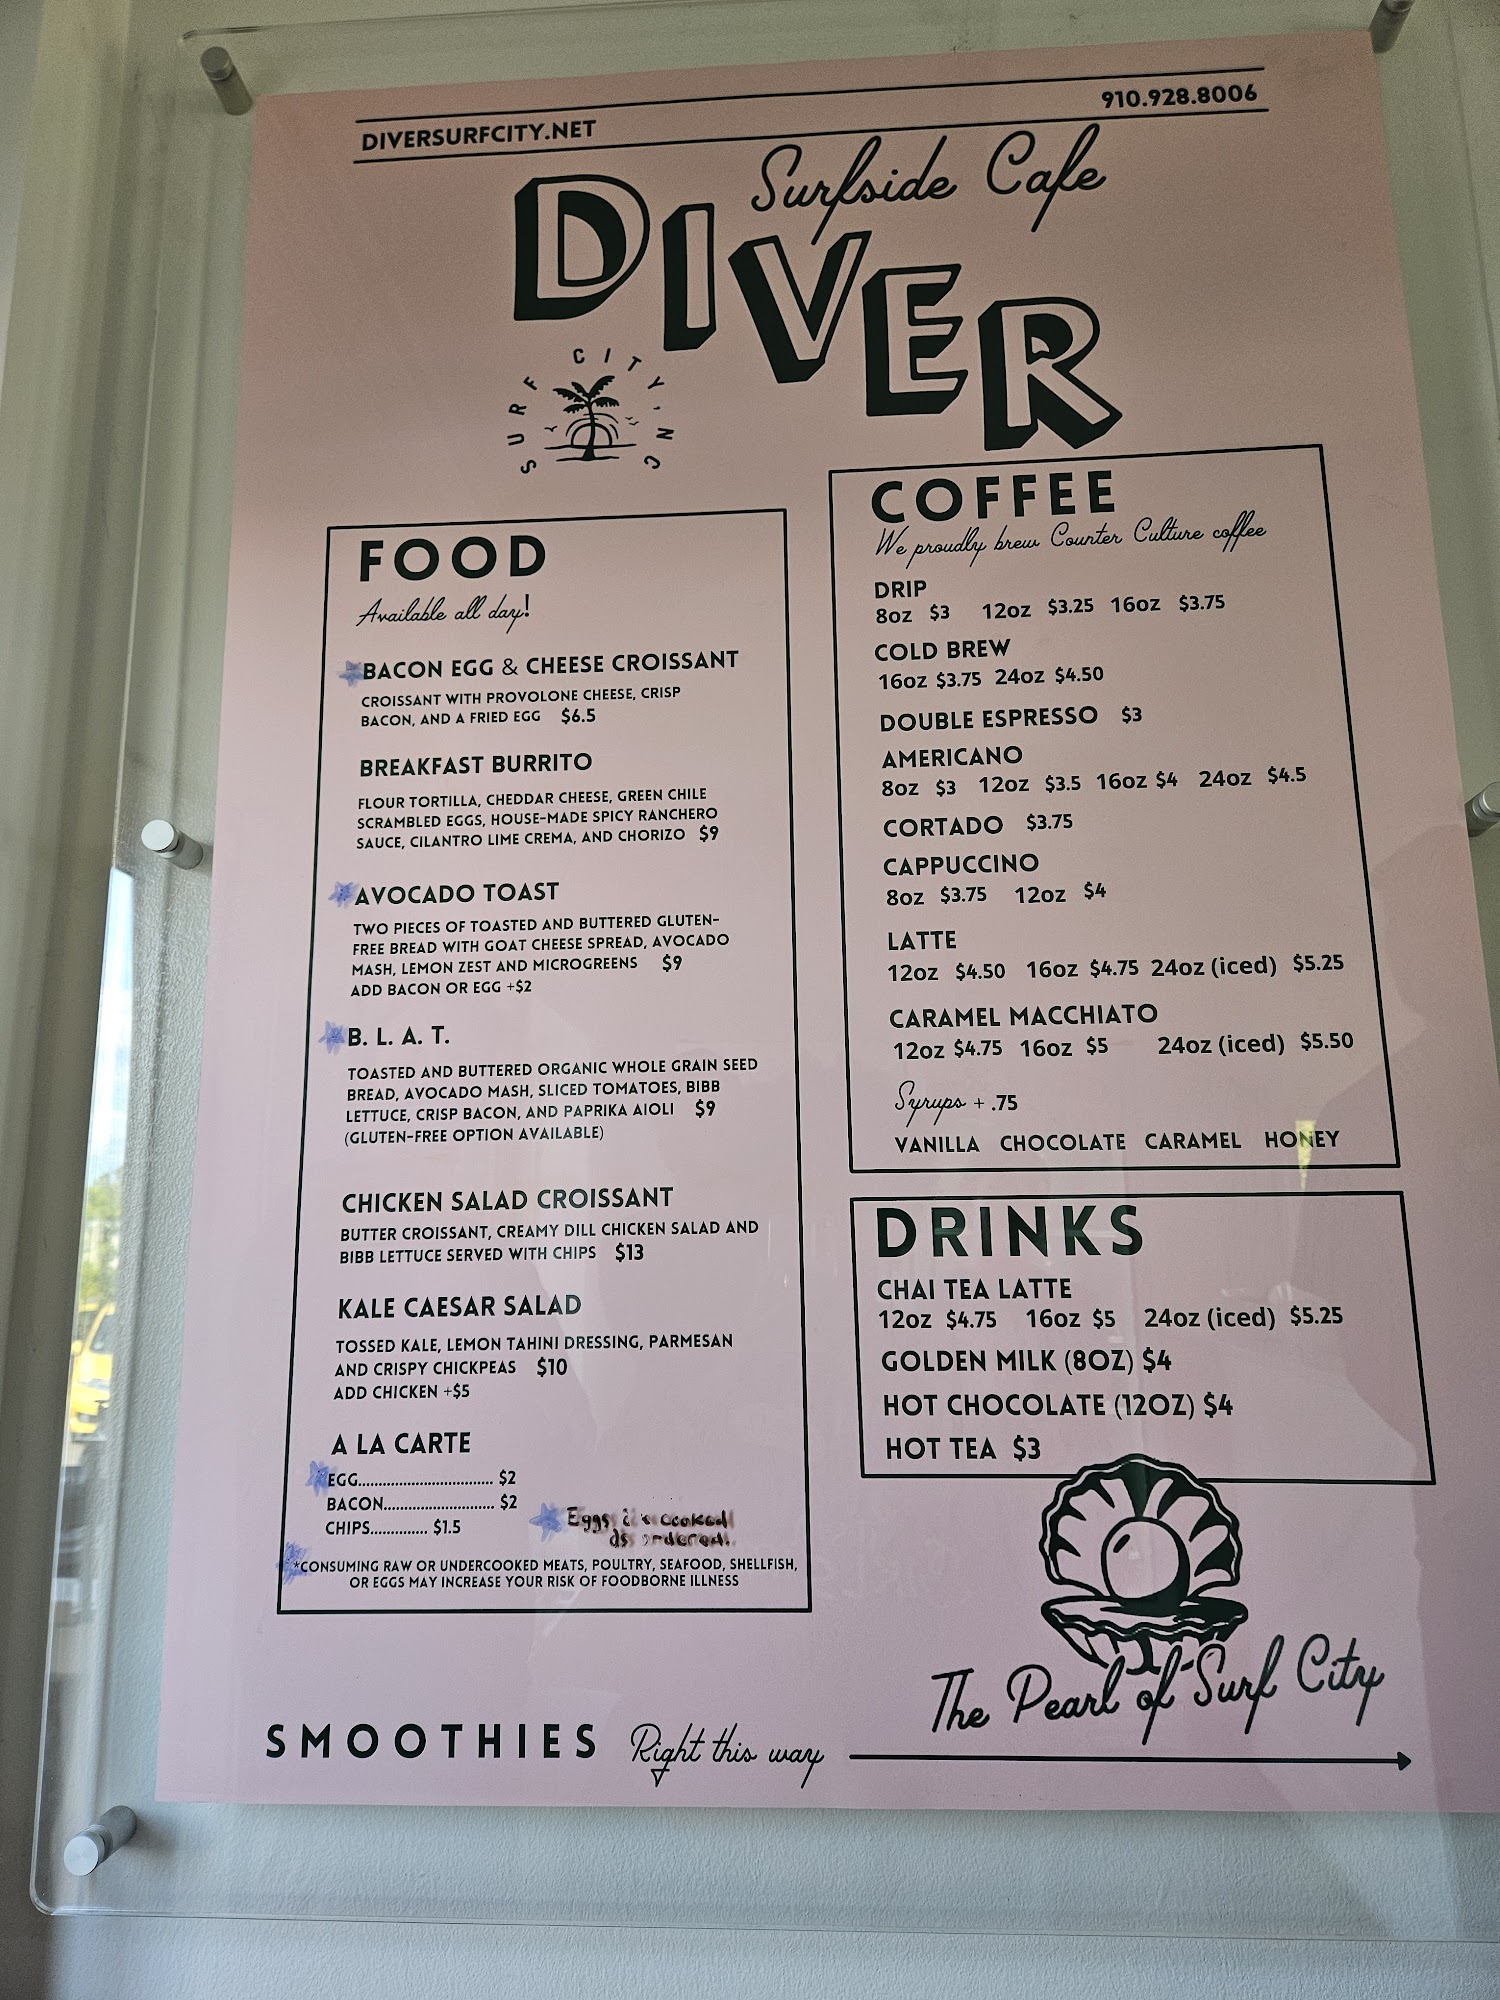 DIVERSURFCITY.NET
910.928.8006
Surfside Cafe
DIVER
SURF CITY, NC
FOOD
Available all day!
BACON EGG & CHEESE CROISSANT
CROISSANT WITH PROVOLONE CHEESE, CRISP
BACON, AND A FRIED EGG $6.5
BREAKFAST BURRITO
FLOUR TORTILLA, CHEDDAR CHEESE, GREEN CHILE
SCRAMBLED EGGS, HOUSE-MADE SPICY RANCHERO
SAUCE, CILANTRO LIME CREMA, AND CHORIZO $9
AVOCADO TOAST
TWO PIECES OF TOASTED AND BUTTERED GLUTEN-
FREE BREAD WITH GOAT CHEESE SPREAD, AVOCADO
MASH, LEMON ZEST AND MICROGREENS $9
ADD BACON OR EGG +$2
B. L. A. T.
TOASTED AND BUTTERED ORGANIC WHOLE GRAIN SEED
BREAD, AVOCADO MASH, SLICED TOMATOES, BIBB
LETTUCE, CRISP BACON, AND PAPRIKA AIOLI $9
(GLUTEN-FREE OPTION AVAILABLE)
CHICKEN SALAD CROISSANT
BUTTER CROISSANT, CREAMY DILL CHICKEN SALAD AND
BIBB LETTUCE SERVED WITH CHIPS $13
KALE CAESAR SALAD
TOSSED KALE, LEMON TAHINI DRESSING, PARMESAN
AND CRISPY CHICKPEAS $10
ADD CHICKEN +$5
A LA CARTE
EGG................................. $2
BACON........................... $2
CHIPS.............. $1.5
Eggs cooked
as ordered!
*CONSUMING RAW OR UNDERCOOKED MEATS, POULTRY, SEAFOOD, SHELLFISH,
OR EGGS MAY INCREASE YOUR RISK OF FOODBORNE ILLNESS
COFFEE
We proudly brew Counter Culture coffee
DRIP
8oz $3 12oz $3.25 16oz $3.75
COLD BREW
16oz $3.75 24oz $4.50
DOUBLE ESPRESSO $3
AMERICANO
8oz $3 12oz $3.5 16oz $4 24oz $4.5
CORTADO $3.75
CAPPUCCINO
8oz $3.75 12oz $4
LATTE
12oz $4.50 16oz $4.75 24oz (iced) $5.25
CARAMEL MACCHIATO
12oz $4.75 16oz $5 24oz (iced) $5.50
Syrups + .75
VANILLA CHOCOLATE CARAMEL HONEY
DRINKS
CHAI TEA LATTE
12oz $4.75 16oz $5 24oz (iced) $5.25
GOLDEN MILK (8OZ) $4
HOT CHOCOLATE (12OZ) $4
HOT TEA $3
The Pearl of Surf City
SMOOTHIES Right this way